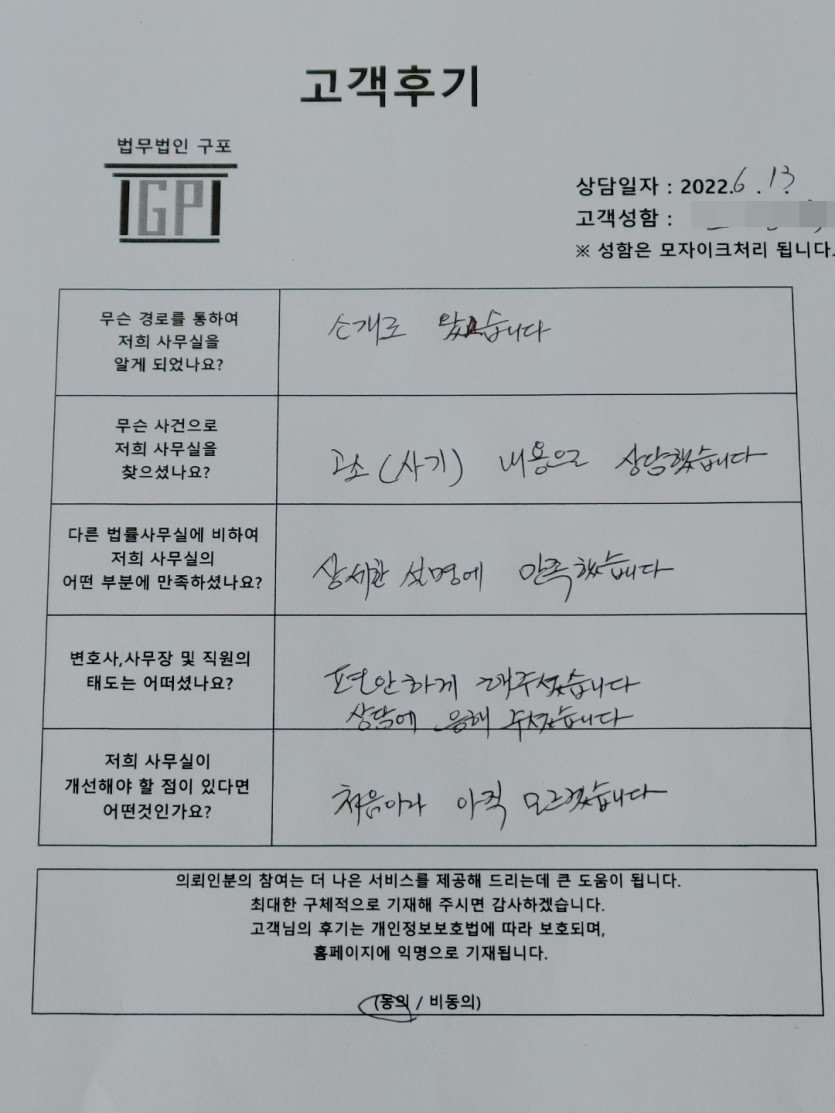 고객후기
법무법인 구포
GP
상담일자 : 2022.6.13
고객성함 :
※ 성함은 모자이크처리 됩니다.
무슨 경로를 통하여
저희 사무실을
알게 되었나요?
소개로 왔습니다
무슨 사건으로
저희 사무실을
찾으셨나요?
고소(사기) 내용으로 상담했습니다
다른 법률사무실에 비하여
저희 사무실의
어떤 부분에 만족하셨나요?
상세한 설명에 만족했습니다
변호사,사무장 및 직원의
태도는 어떠셨나요?
편안하게 해주셨습니다
상담에 응해 주셨습니다
저희 사무실이
개선해야 할 점이 있다면
어떤것인가요?
처음이라 아직 모르겠습니다
의뢰인분의 참여는 더 나은 서비스를 제공해 드리는데 큰 도움이 됩니다.
최대한 구체적으로 기재해 주시면 감사하겠습니다.
고객님의 후기는 개인정보보호법에 따라 보호되며,
홈페이지에 익명으로 기재됩니다.
(동의 / 비동의)